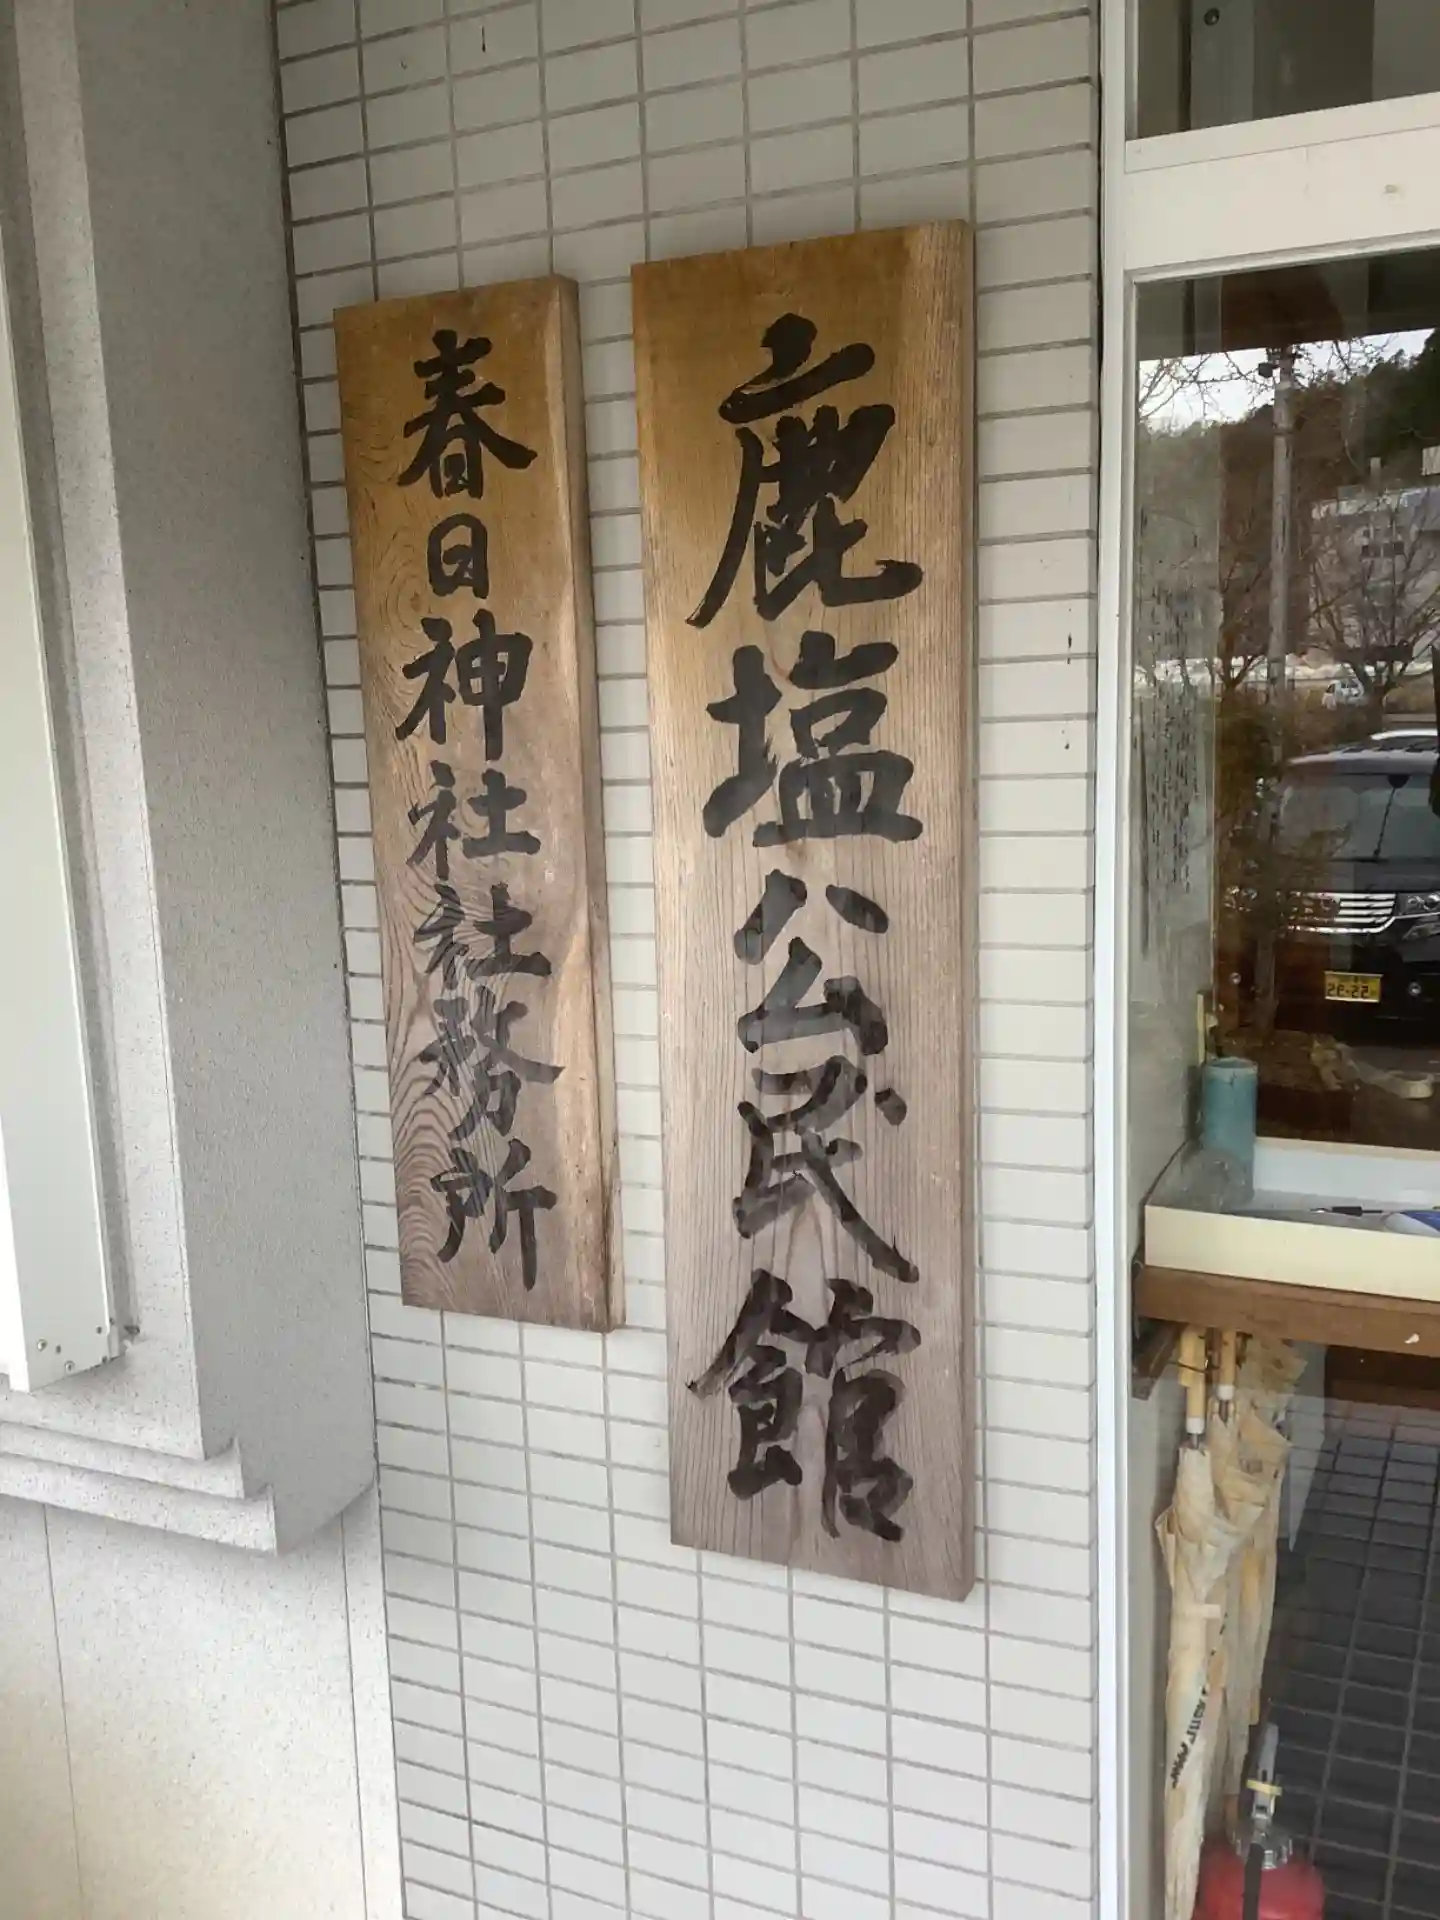 鹿塩公民館
春日神社社務所